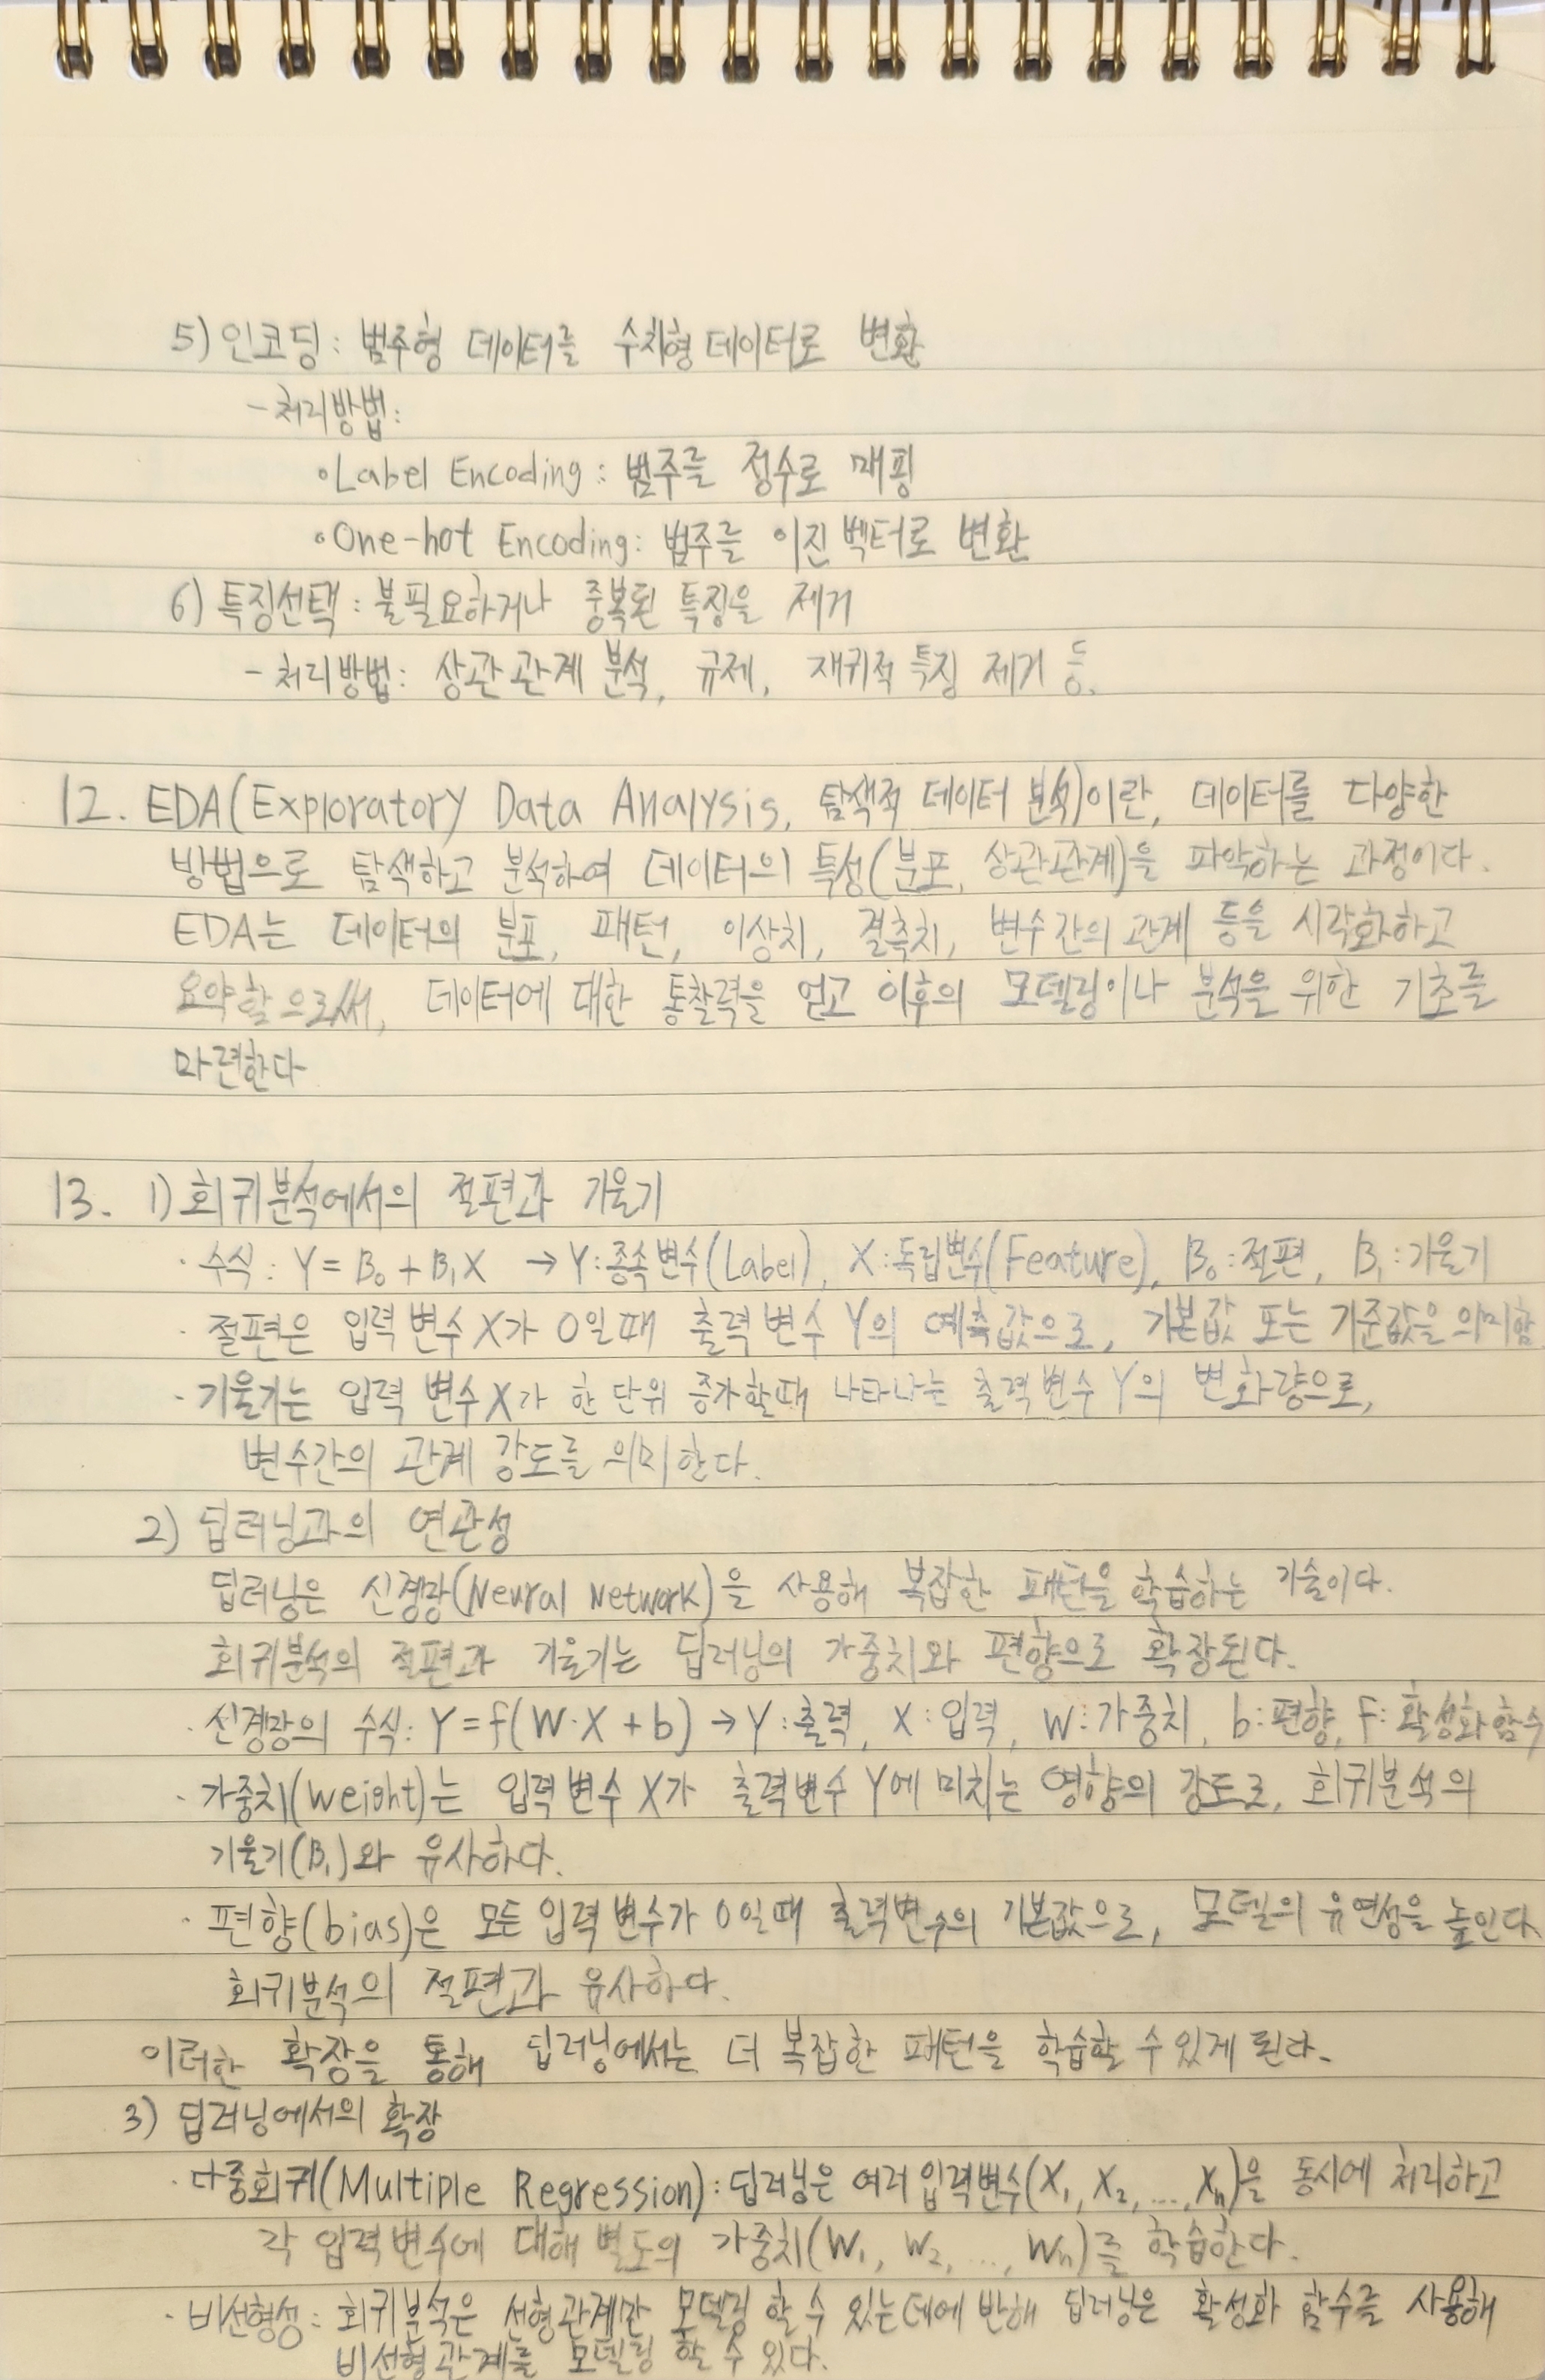 5) 인코딩 : 범주형 데이터를 수치형 데이터로 변환
- 처리방법 :
◦Label Encoding : 범주를 정수로 매핑
◦One-hot Encoding : 범주를 이진 벡터로 변환
6) 특징선택 : 불필요하거나 중복된 특징을 제거
- 처리방법 : 상관관계 분석, 규제, 재귀적 특징 제거 등.
12. EDA(Exploratory Data Analysis, 탐색적 데이터 분석)이란, 데이터를 다양한
방법으로 탐색하고 분석하여 데이터의 특성(분포, 상관관계)을 파악하는 과정이다.
EDA는 데이터의 분포, 패턴, 이상치, 결측치, 변수간의 관계 등을 시각화하고
요약함으로써, 데이터에 대한 통찰력을 얻고 이후의 모델링이나 분석을 위한 기초를
마련한다
13. 1) 회귀분석에서의 절편과 기울기
· 수식 : Y = B₀ + B₁X → Y : 종속변수(Label), X : 독립변수(Feature), B₀ : 절편, B₁ : 기울기
· 절편은 입력 변수 X가 0일때 출력 변수 Y의 예측값으로, 기본값 또는 기준값을 의미함
· 기울기는 입력 변수 X가 한 단위 증가할때 나타나는 출력변수 Y의 변화량으로,
변수간의 관계 강도를 의미한다.
2) 딥러닝과의 연관성
딥러닝은 신경망(Neural Network)을 사용해 복잡한 패턴을 학습하는 기술이다.
회귀분석의 절편과 기울기는 딥러닝의 가중치와 편향으로 확장된다.
· 신경망의 수식 : Y = f(W·X + b) → Y : 출력, X : 입력, W : 가중치, b : 편향, F : 활성화함수
· 가중치(weight)는 입력변수 X가 출력변수 Y에 미치는 영향의 강도로, 회귀분석의
기울기(B₁)와 유사하다.
· 편향(bias)은 모든 입력 변수가 0일때 출력변수의 기본값으로, 모델의 유연성을 높인다.
회귀분석의 절편과 유사하다.
이러한 확장을 통해 딥러닝에서는 더 복잡한 패턴을 학습할 수 있게 된다.
3) 딥러닝에서의 확장
· 다중회귀(Multiple Regression) : 딥러닝은 여러 입력변수(X₁, X₂, ..., Xn)을 동시에 처리하고
각 입력변수에 대해 별도의 가중치(W₁, W₂, ..., Wn)를 학습한다.
· 비선형성 : 회귀분석은 선형관계만 모델링 할 수 있는데에 반해 딥러닝은 활성화 함수를 사용해
비선형 관계를 모델링 할 수 있다.